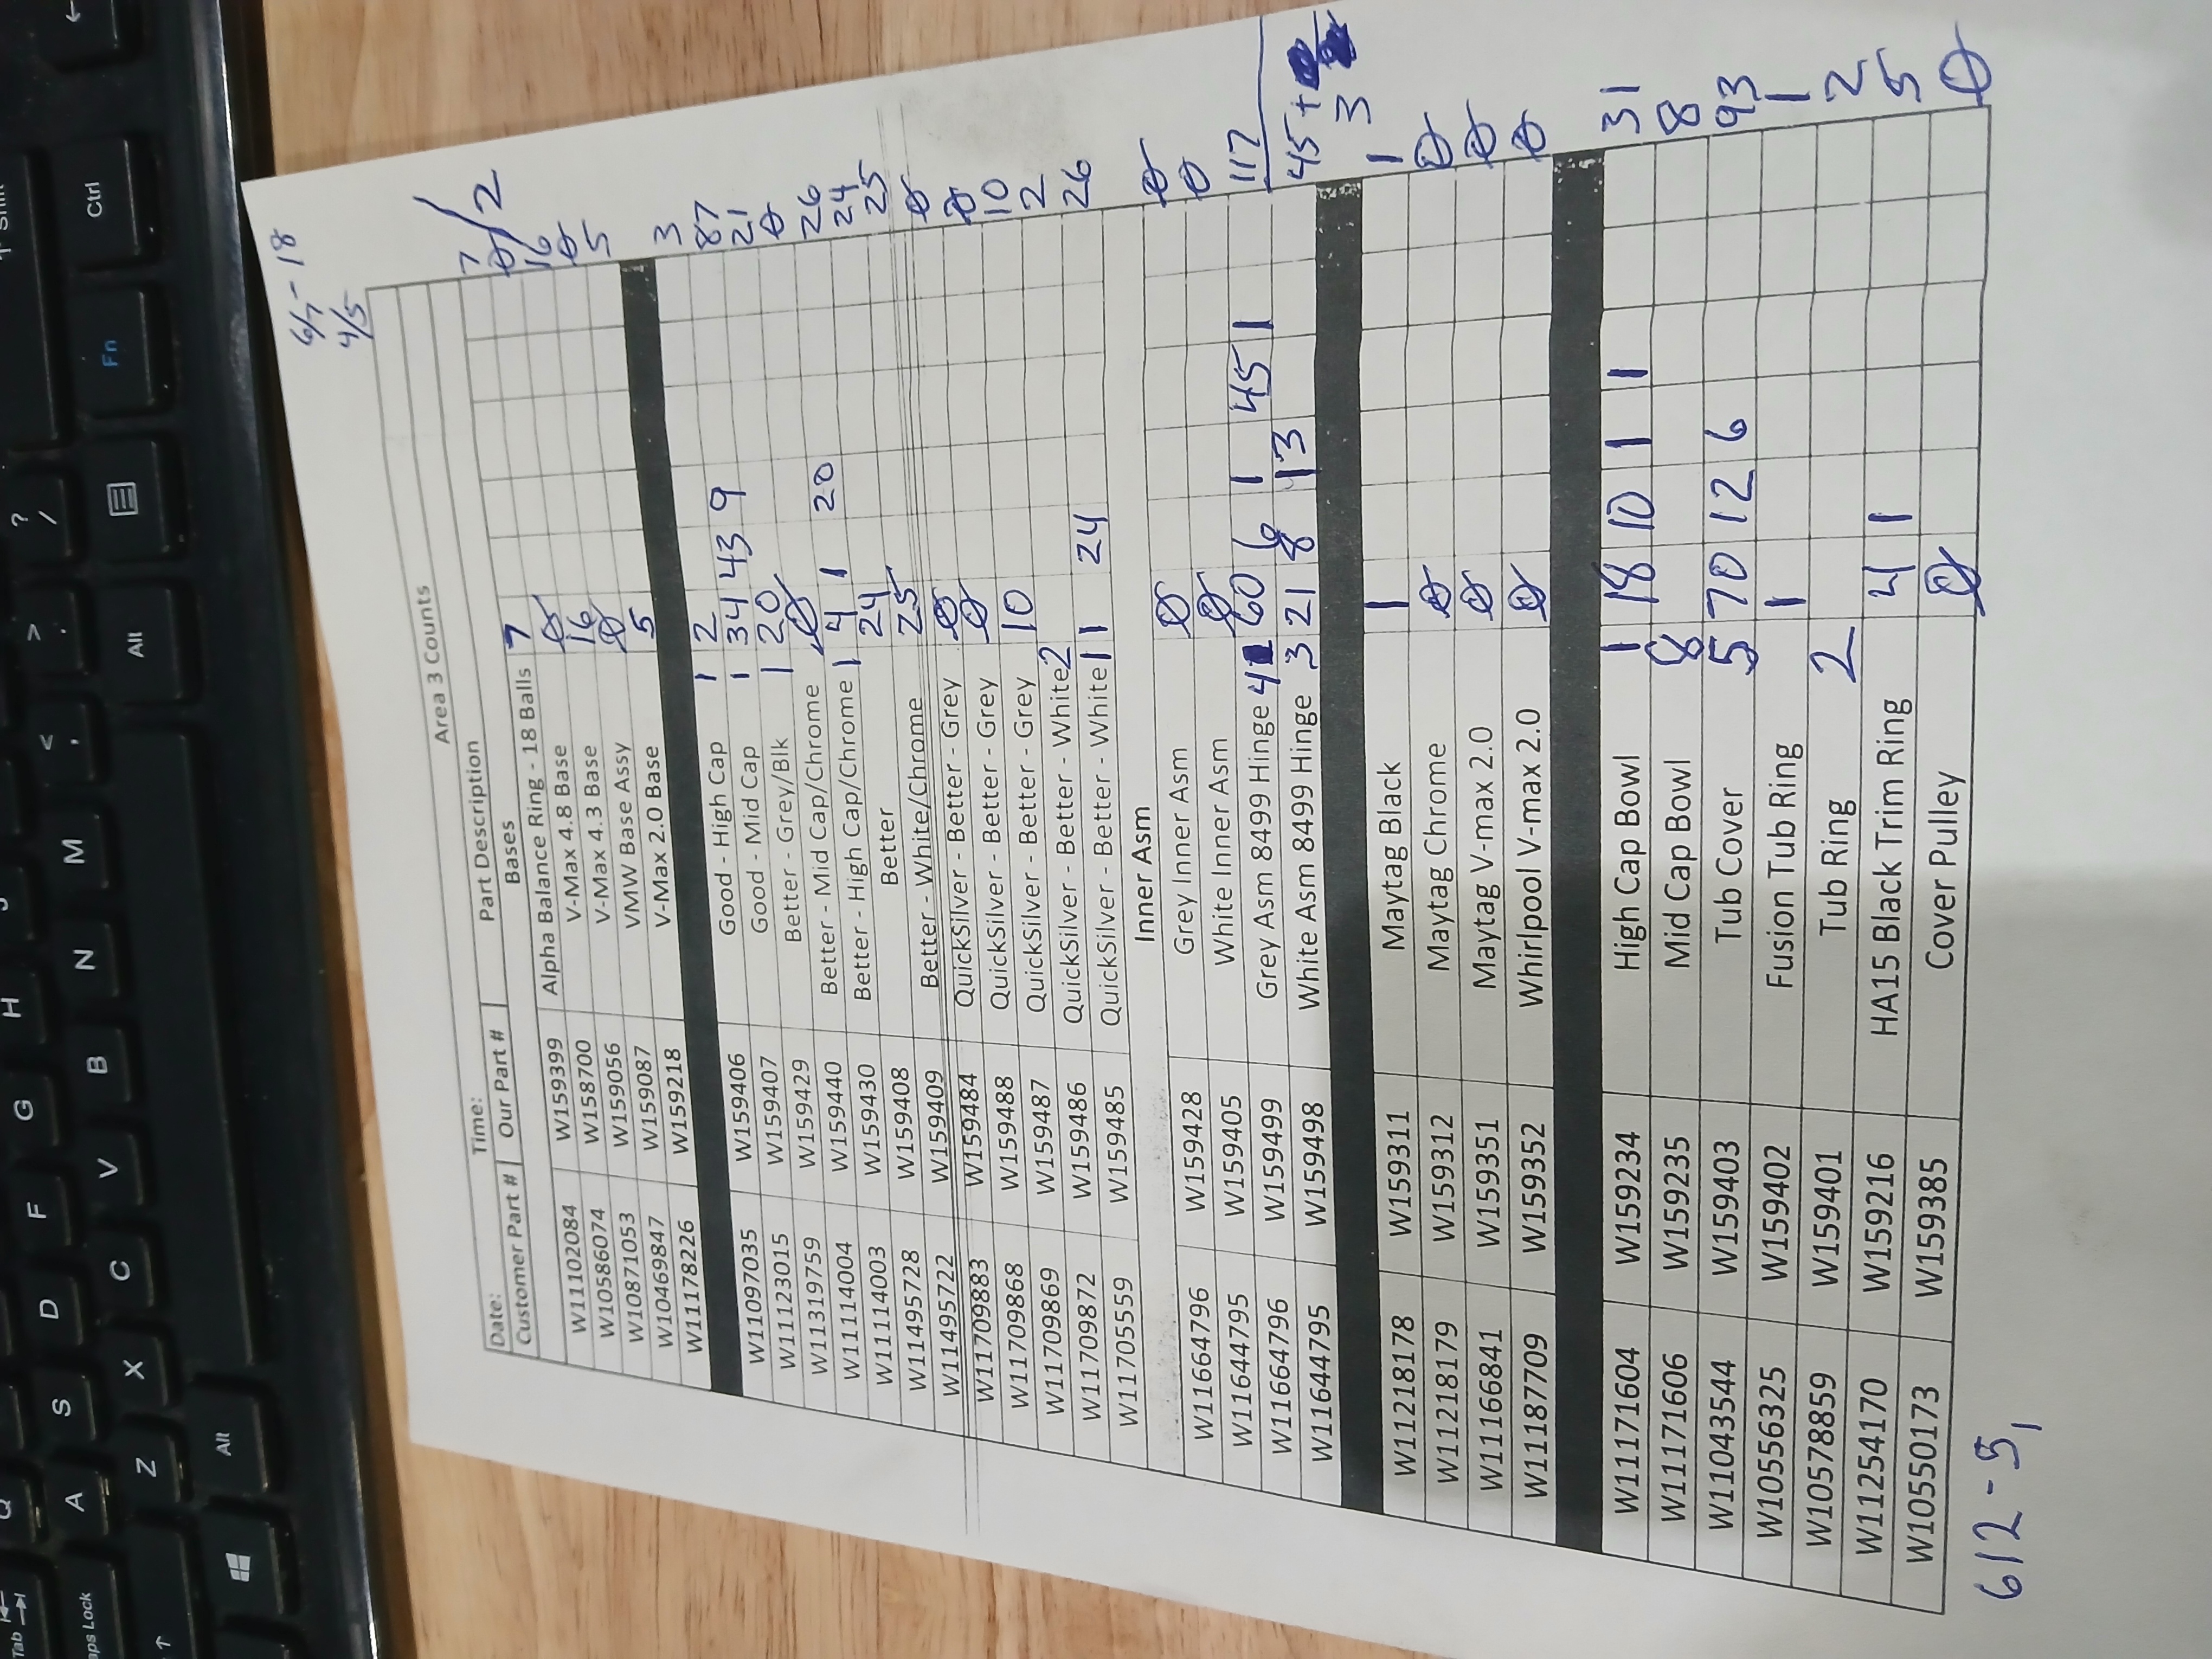 6/7 - 18
4/5
Area 3 Counts
Date: Time:
Customer Part # Our Part # Part Description
Bases
W11102084 W159399 Alpha Balance Ring - 18 Balls 7 7
W10586074 W158700 V-Max 4.8 Base Ø Ø / 2
W10871053 W159056 V-Max 4.3 Base 16 16
W10469847 W159087 VMW Base Assy Ø Ø
W11178226 W159218 V-Max 2.0 Base 5 5
W11097035 W159406 Good - High Cap 1 2 3
W11123015 W159407 Good - Mid Cap 1 34 43 9 87
W11319759 W159429 Better - Grey/Blk 1 20 21
W11114004 W159440 Better - Mid Cap/Chrome Ø Ø
W11114003 W159430 Better - High Cap/Chrome 1 4 1 20 26
W11495728 W159408 Better 24 24
W11495722 W159409 Better - White/Chrome 25 25
W11709883 W159484 QuickSilver - Better - Grey Ø Ø
W11709868 W159488 QuickSilver - Better - Grey Ø Ø
W11709869 W159487 QuickSilver - Better - Grey 10 10
W11709872 W159486 QuickSilver - Better - White 2 2
W11705559 W159485 QuickSilver - Better - White 1 1 24 26
Inner Asm
W11664796 W159428 Grey Inner Asm Ø Ø
W11644795 W159405 White Inner Asm Ø Ø
W11664796 W159499 Grey Asm 8499 Hinge 4 60 6 1 45 1 117
W11644795 W159498 White Asm 8499 Hinge 3 21 8 13 45 +
3
W11218178 W159311 Maytag Black 1 1
W11218179 W159312 Maytag Chrome Ø Ø
W11166841 W159351 Maytag V-max 2.0 Ø Ø
W11187709 W159352 Whirlpool V-max 2.0 Ø Ø
W11171604 W159234 High Cap Bowl 1 18 10 1 1 31
W11171606 W159235 Mid Cap Bowl 8 8
W11043544 W159403 Tub Cover 5 70 12 6 93
W10556325 W159402 Fusion Tub Ring 1 1
W10578859 W159401 Tub Ring 2 2
W11254170 W159216 HA15 Black Trim Ring 4 1 5
W10550173 W159385 Cover Pulley Ø Ø
612 - 5,
Tab
Caps Lock
A S D F G H
Z X C V B N M < , > . ? /
Alt Alt Fn Ctrl